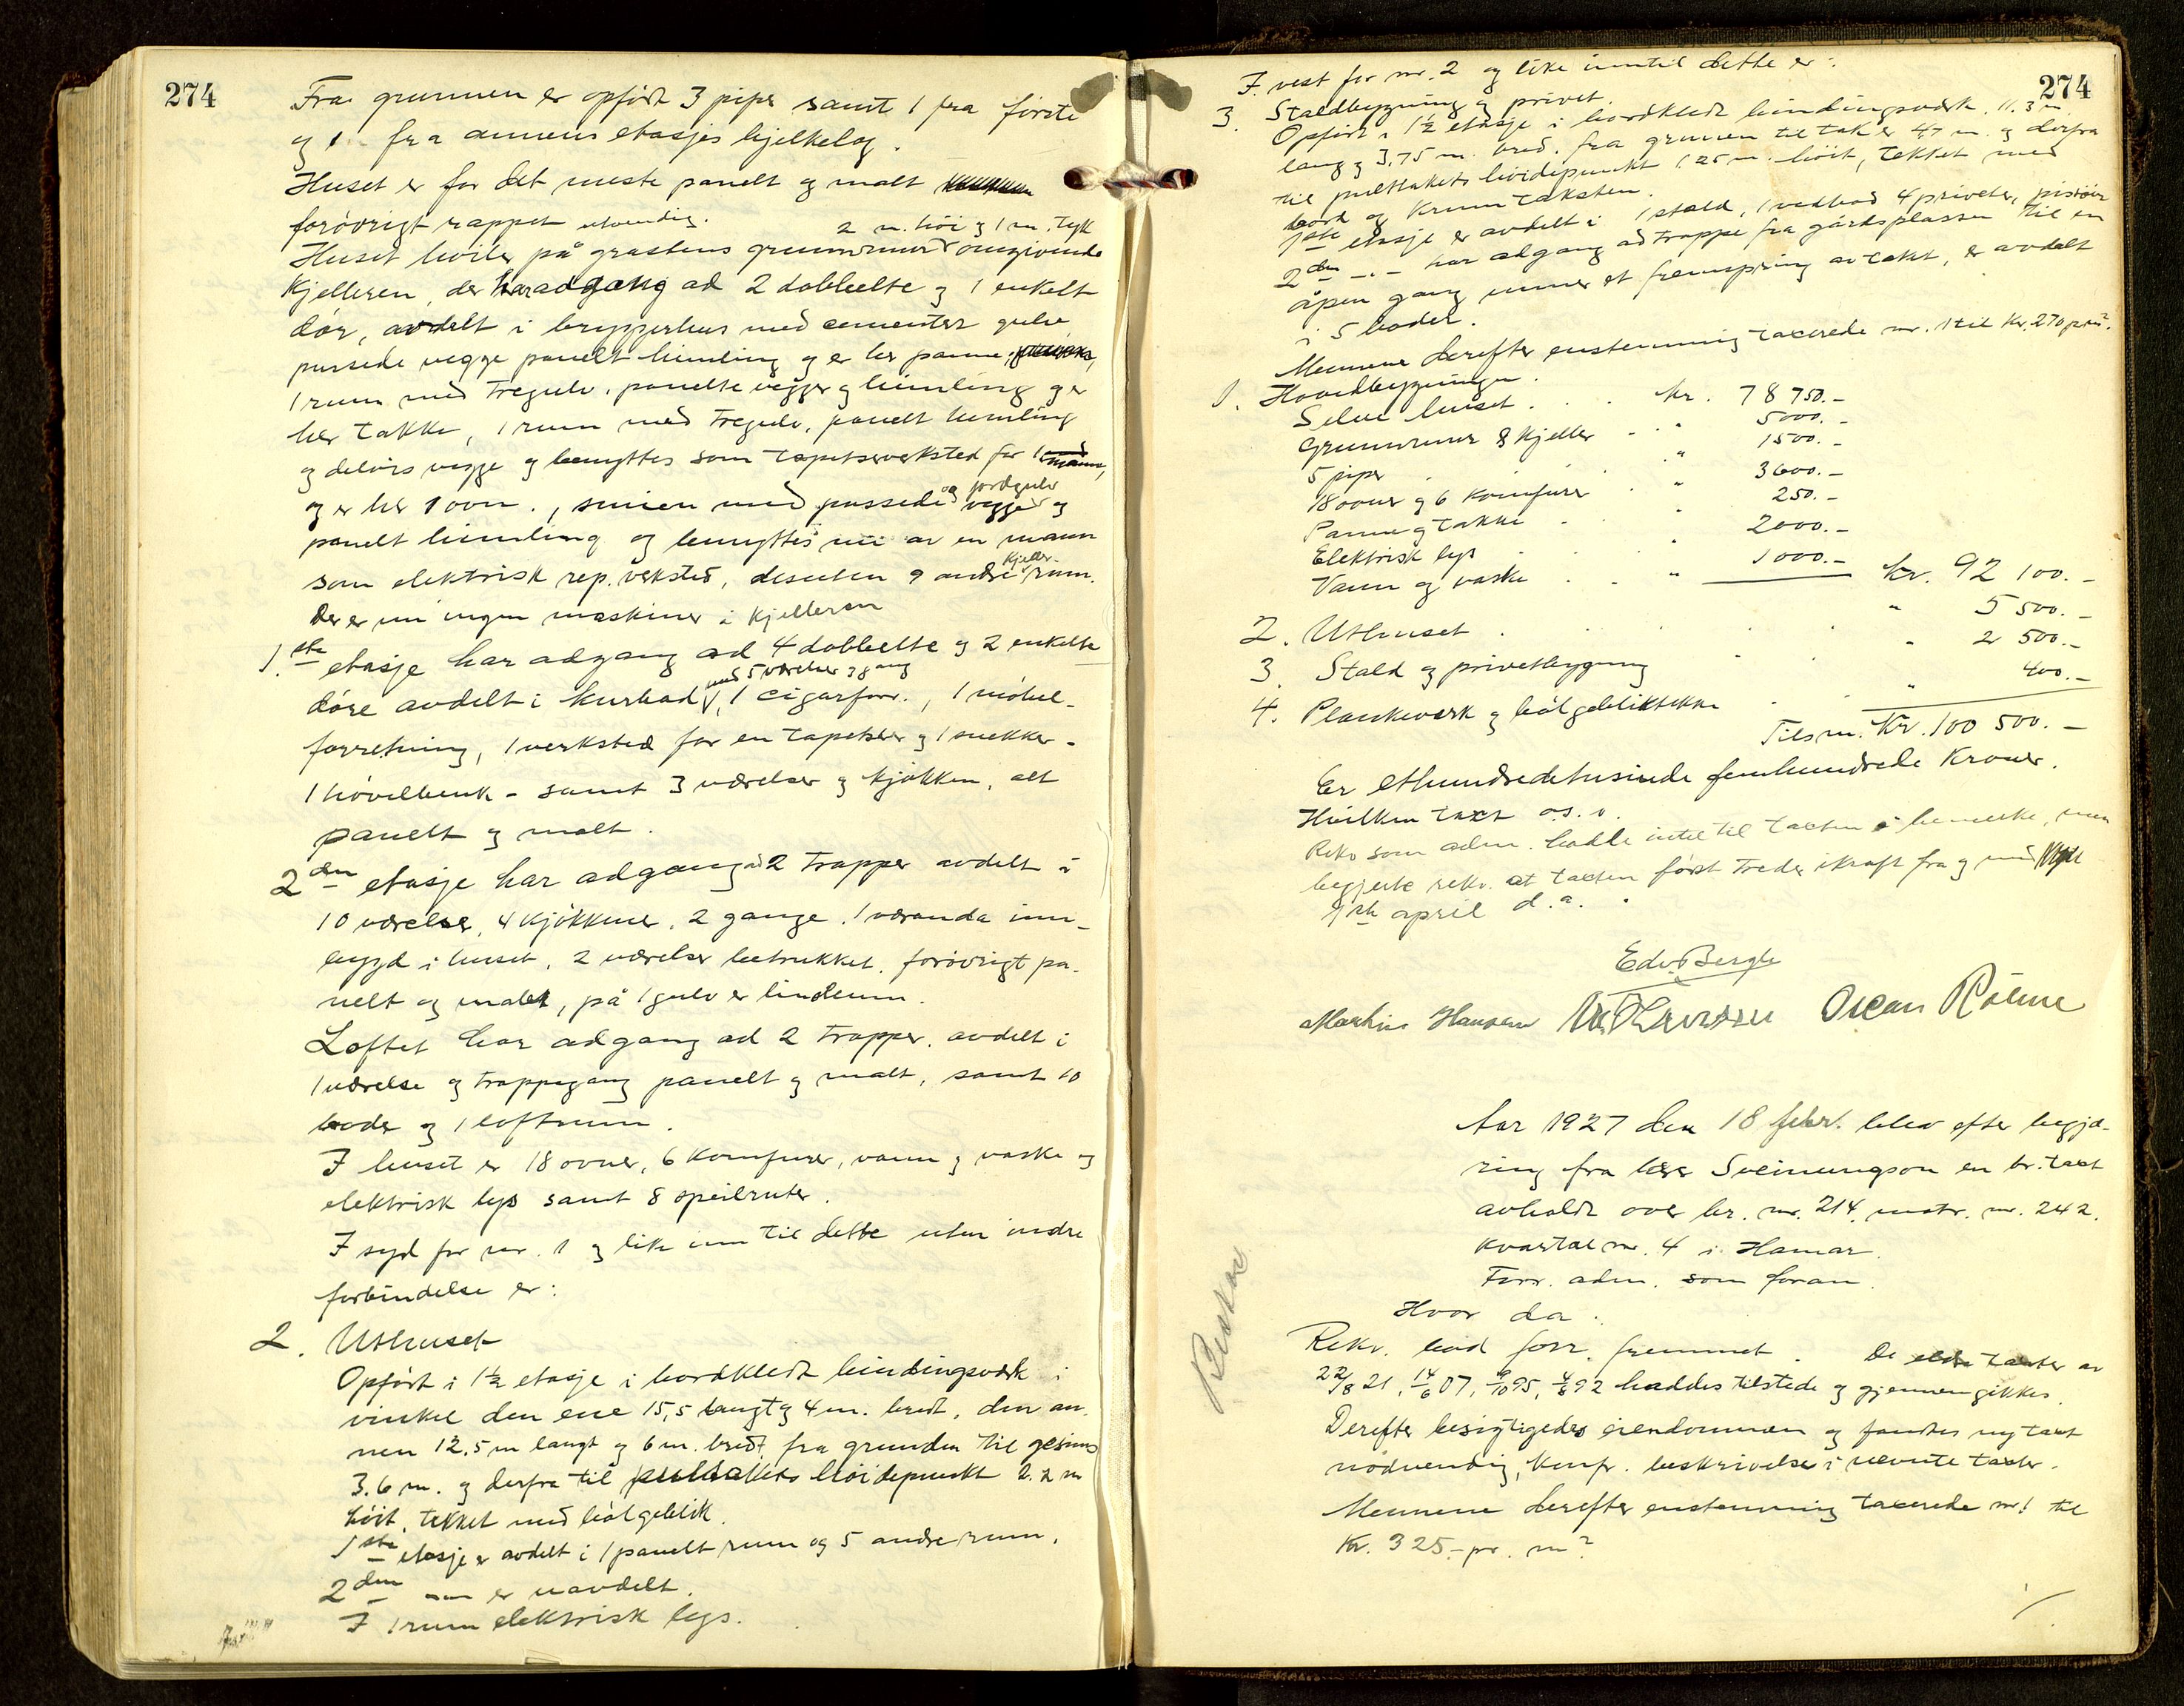 274
Fra grunnen er opført 3 piper samt 1 fra første
og 1 - fra annens etasjes bjelkelag.
Huset er for det meste panelt og malt
forøvrigt rappet utvendig.
2 m. høi og 1 m. tykk
Huset hviler på gråstens grunnmur omgivende
kjelleren, der har adgang ad 2 dobbelte og 1 enkelt
dør, avdelt i bryggerhus med cementer gulv
pussede vegge panelt himling og er her panne,
1 rum med tregulv, panelte vegger og himling og er
her takke, 1 rum med tregulv, panelt himling
og delvis vegge og benyttes som tapetserverksted for 1 mann,
og er her 1 ovn., smien med pussede vegger og jordgulv og
panelt himling og benyttes nu av en mann
som elektrisk rep. verksted, desuten 9 andre kjeller rum.
Der er nu ingen maskiner i kjelleren
1.ste etasje har adgang ad 4 dobbelte og 2 enkelte
døre avdelt i kurbad med 5 værelser og gang, 1 cigarforr., 1 møbel-
forretning, 1 verksted for en tapetserer og 1 snekker -
1 høvelbenk - samt 3 værelser og kjøkken, alt
panelt og malt.
2den etasje har adgang ad 2 trapper avdelt i
10 værelser, 4 kjøkkener, 2 gange, 1 veranda inn-
bygd i huset, 2 værelser betrukket, forøvrigt pa-
nelt og malt, på 1 gulv er linoleum.
Loftet har adgang ad 2 trapper, avdelt i
1 værelse og trappegang panelt og malt, samt 10
boder og 1 loftrum.
I huset er 18 ovner, 6 komfurer, vann og vaske og
elektrisk lys samt 8 speilruter.
I syd for nr. 1 og like inn til dette uten indre
forbindelse er:
2. Uthuset
Opført i 1½ etasje i bordklædt bindingsværk i
vinkel den ene 15,5 langt og 4 m. bredt, den an-
nen 12.5 m langt og 6 m. bredt, fra grunden til gesims
3.6 m. og derfra til pulttakets høidepunkt 2.2 m
høit, tekket med bølgeblik.
1ste etasje er avdelt i 1 panelt rum og 5 andre rum.
2den -"- er uavdelt.
I 1 rum elektrisk lys.
274
I vest for nr. 2 og like inntil dette er:
3. Staldbygning og privet.
Opført i 1½ etasje i bordklædt bindingsværk, 11.3 m
lang og 3.75 m. bred, fra grunnen til tak er 4,7 m. og derfra
til pulttakets høidepunkt 1.25 m. høit, tekket med
bord og krum taksten.
1ste etasje er avdelt i 1 stald, 1 vedbod 4 priveter, pissoir
2den -"- har adgang ad trappe fra gårdsplassen til en
åpen gang under et fremspring av taket, er avdelt
i 5 boder.
Mennene derefter enstemmig taxerede nr. 1 til kr. 270 pr. m².
1. Hovedbygningen.
Selve huset . . . kr. 78 750.-
Grunnmur & kjeller - " 5000.-
5 piper . " 1500.-
18 ovner og 6 komfurer . " 3600.-
Panne og takke . " 250.-
Elektrisk lys . " 2000.-
Vann og vaske . . " 1000.- kr. 92 100.-
2. Uthuset . . . " 5 500.-
3. Stald og privetbygning " 2 500.-
4. Plankeværk og bølgebliktekke . " 400.-
Tilsm. Kr. 100 500.-
Er ethundredetusinde femhundrede Kroner.
Hvilken taxt o.s.v.
Rekv som adm. hadde intet til taxten å bemerke, men
begjærte rekv. at taxten først treder ikraft fra og med
1ste april d.a.
Edv. Bergh
Markus Hansen Oscar Røhne
Aar 1927 den 18 febr. blev efter begjæ-
ring fra herr Sveinungson en br. taxt
avholdt over br. nr. 214, matr. nr. 242.
kvartal nr. 4 i Hamar.
Forr. adm. som foran.
Hvor da:
Rekv. bad forr. fremmet. De eldre taxter av
22/8 21, 14/6 07, 9/10 95, 4/8 92 haddes tilstede og gjennemgikkes.
Derefter besigtigedes eiendommen og fandtes ny taxt
nødvendig, konfr. beskrivelse i nævnte taxter.
Mennene derefter enstemmig taxerede nr 1 til
Kr. 325.- pr. m².